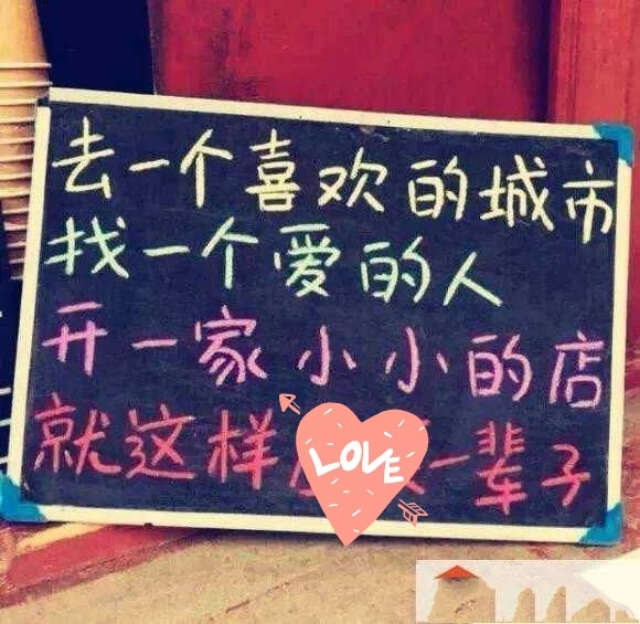 去一个喜欢的城市
找一个爱的人
开一家小小的店
就这样一辈子
LOVE